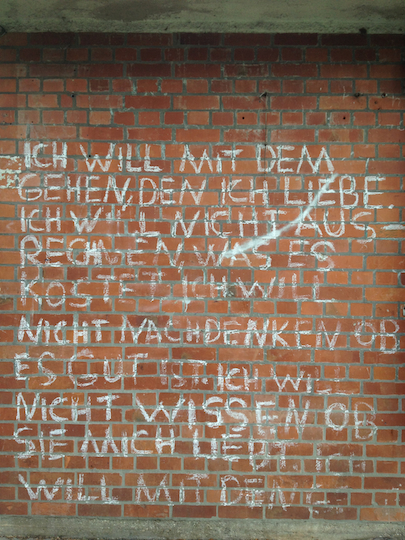 ICH WILL MIT DEM
GEHEN, DEN ICH LIEBE.
ICH WILL NICHT AUS-
RECHNEN, WAS ES
KOSTET. ICH WILL
NICHT NACHDENKEN OB
ES GUT IST. ICH WILL
NICHT WISSEN OB
SIE MICH LIEBT. ICH
WILL MIT DEM